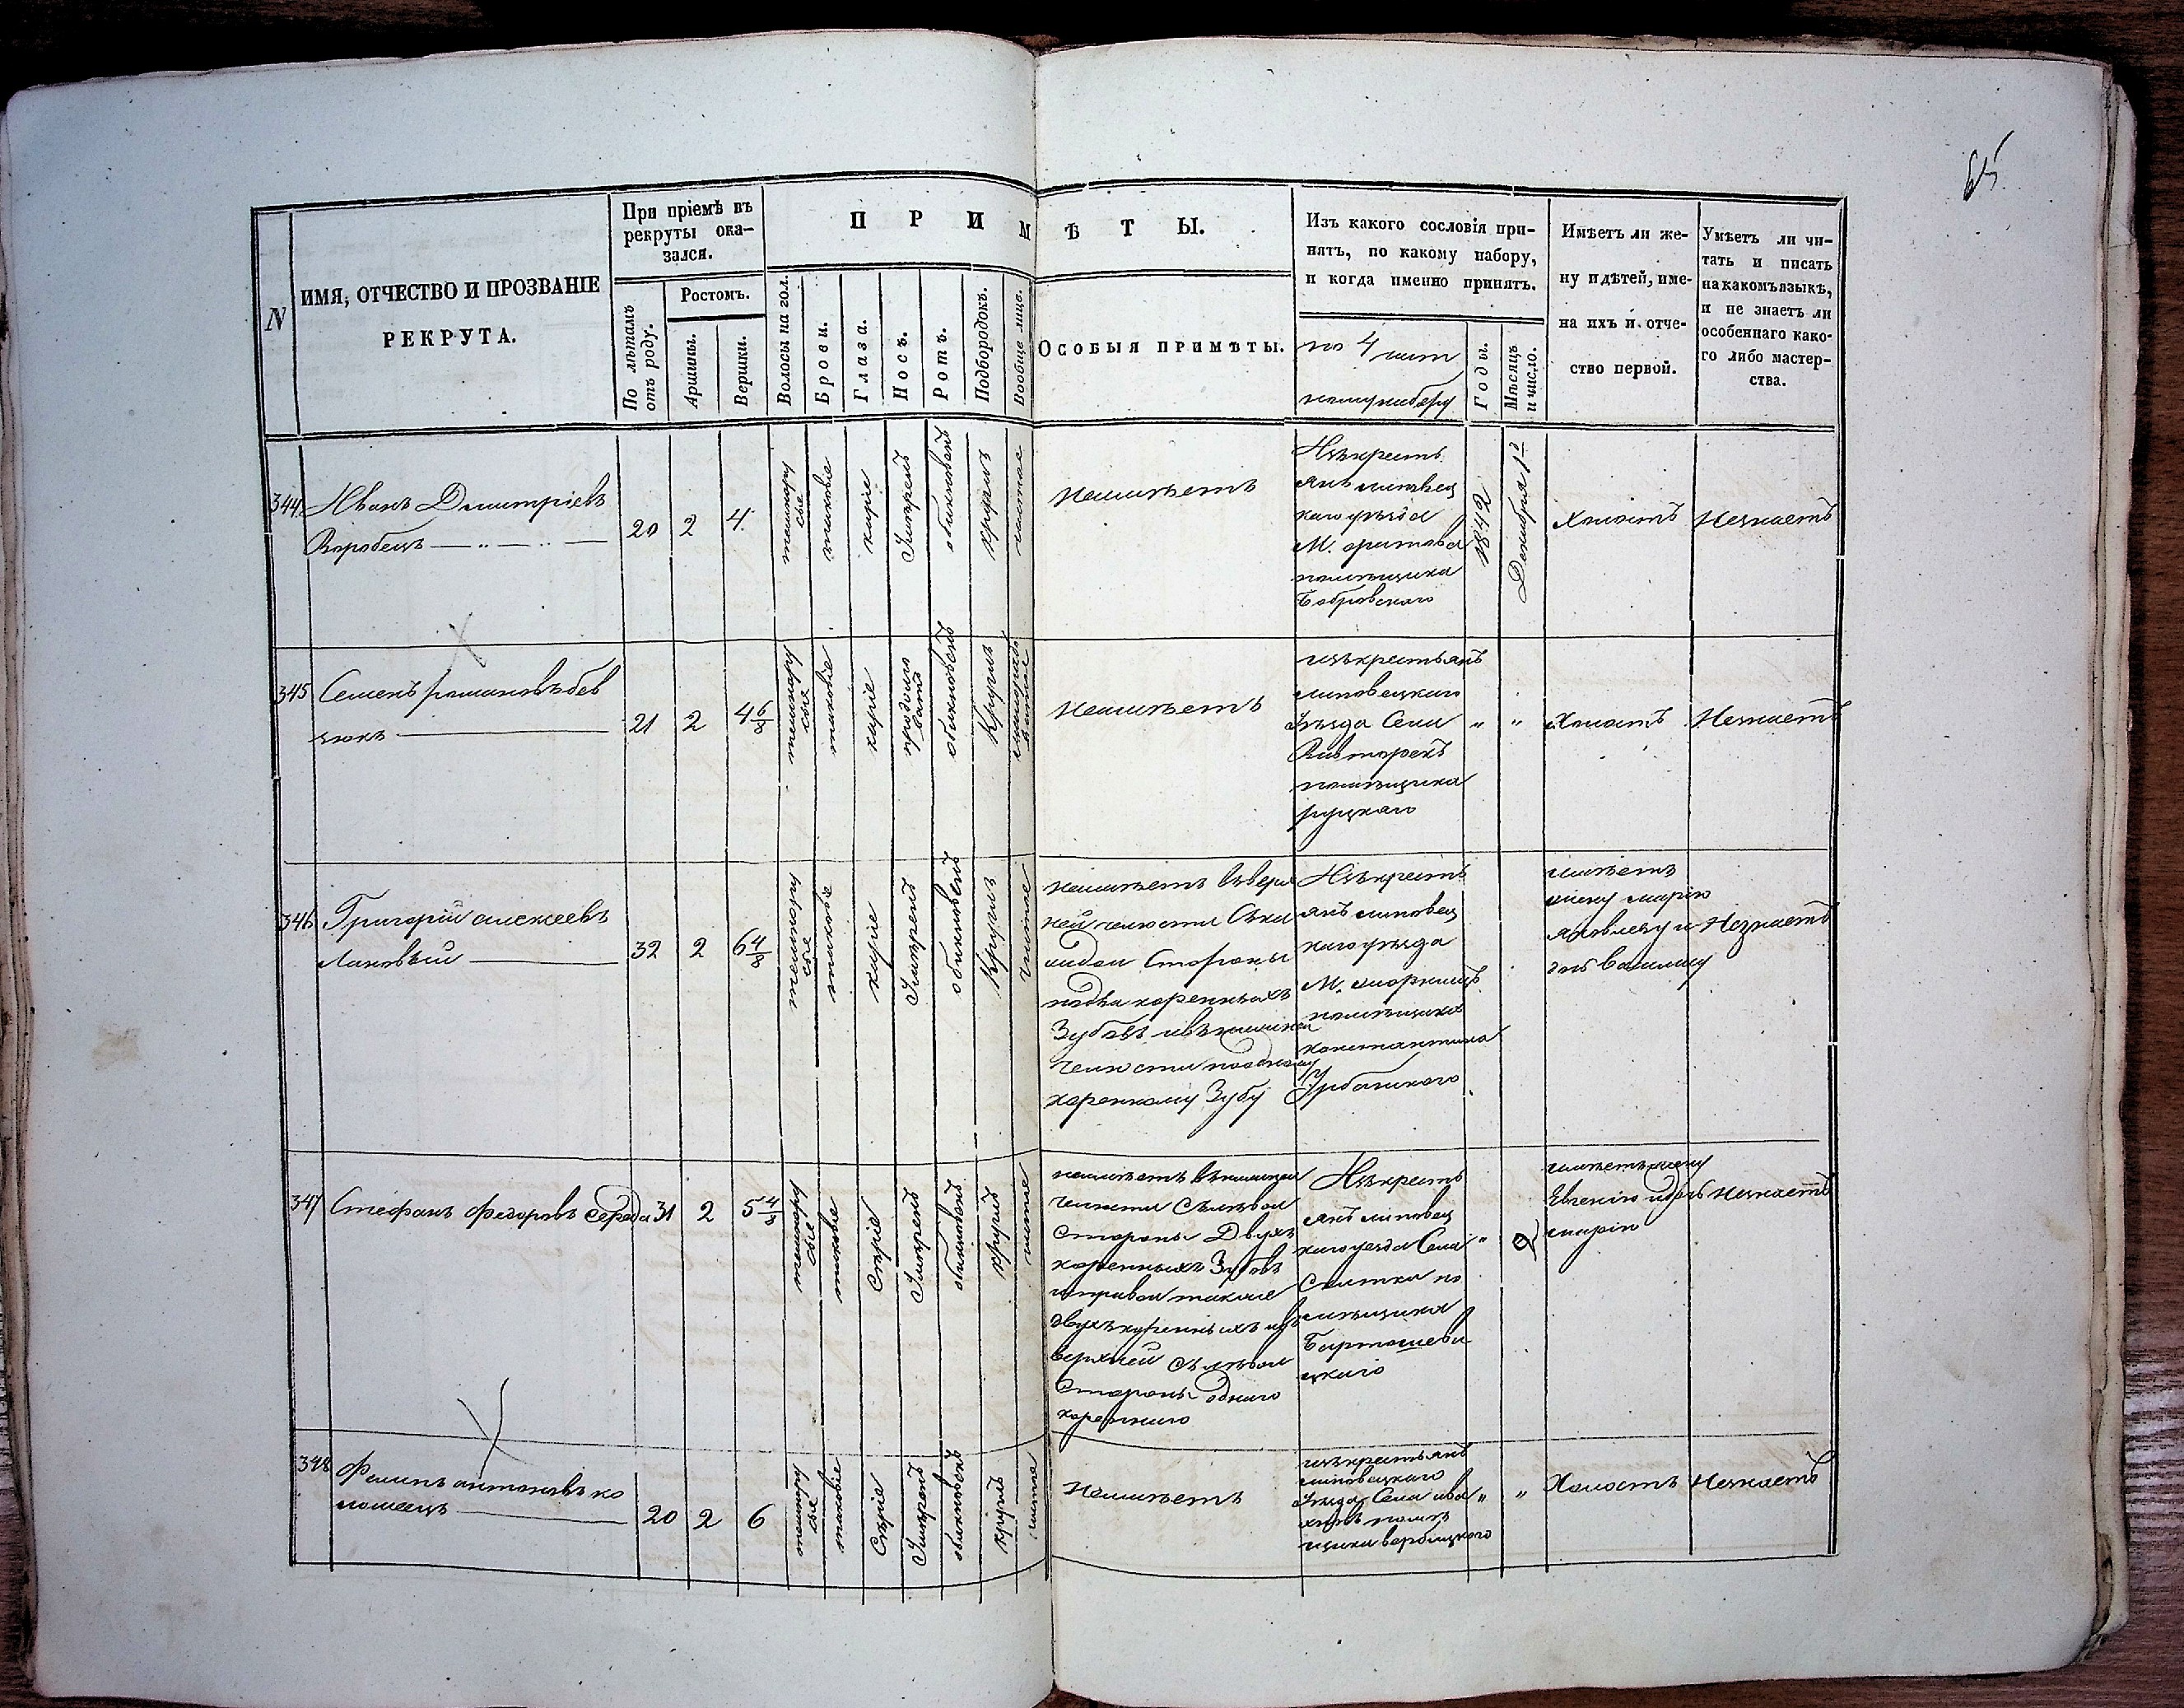 65.
N
ИМЯ, ОТЧЕСТВО И ПРОЗВАНІЕ
РЕКРУТА.
При пріемѣ въ
рекруты ока-
зался.
По лѣтамъ
отъ роду.
Ростомъ.
Аршины.
Вершки.
ПРИМѢТЫ.
Волосы на гол.
Брови.
Глаза.
Носъ.
Ротъ.
Подбородокъ.
Вообще лице.
ОСОБЫЯ ПРИМѢТЫ.
Изъ какого сословія при-
нятъ, по какому набору,
и когда именно принятъ.
по 4 част
ному набору
Годы.
Мѣсяцъ
и число.
Имѣетъ ли же-
ну и дѣтей, име-
на ихъ и отче-
ство первой.
Умѣетъ ли чи-
тать и писать
на какомъ языкѣ,
и не знаетъ ли
особеннаго како-
го либо мастер-
ства.
344.
Иванъ Дмитріевъ
Воробецъ
20
2
4.
темнору
сые
таковые
каріе
Умѣренъ
обыкновенъ
круглъ
чистое
неимѣетъ
Изъ крестъ
янъ липовец
каго уѣзда
М. оратова
помѣщика
Бобровскаго
1842
Декабря 1го
Холостъ
Незнаетъ
345
Семенъ романовъ бев
зюкъ
21
2
4 6/8
темнору
сыя
таковіе
каріе
продолго
ватъ
обыкновенъ
Круглъ
неимѣетъ
изъ крестьянъ
липовецкаго
Уѣзда Села
помѣщика
руцкаго
"
"
Холостъ
Незнаетъ
346
Григорій алексеевъ
Лановый
32
2
6 4/8
темнору
сые
таковые
каріе
Умѣренъ
обыкновенъ
Круглъ
Чистое
неимѣетъ въ верх
ней челюсти Съка
ждой Стороны
подва коренныхъ
Зубовъ и въ нижней
Челюсти поодному
коренному Зубу
Изъ крестъ
янъ липовец
каго уѣзда
М.
помѣщика
константина
Урбанскаго
имѣетъ
жену марію
яковлеву и
дчь
Незнаетъ
347
Стефанъ федоровъ Середа
31
2
5 4/8
темнору
сые
таковые
Сѣріе
Умѣренъ
обыкновенъ
круглъ
чистое
неимѣетъ въ нижней
Челюсти Съ лѣвой
Стороны Двухъ
коренныхъ Зубовъ
справой также
двухъ коренныхъ и въ
верхней съ лѣвой
Стороны одного
кореннаго
Изъ крестъ
янъ липовец
каго уезда Села
Скитка по
мѣщика
Бартошеви
цкаго
"
2
имѣетъ жену
Евгенію и дочь
марію
незнаетъ
348
Филипъ антоновъ ко
ломеецъ
20
2
6
темнору
сые
таковіе
Сѣріе
Умѣренъ
обыкновенъ
круглъ
чистое
Неимѣетъ
изъ крестьянъ
липовецкаго
Уѣзда Села ива
хновъ помѣ
щика вербицкого
"
"
Холостъ
Незнаетъ